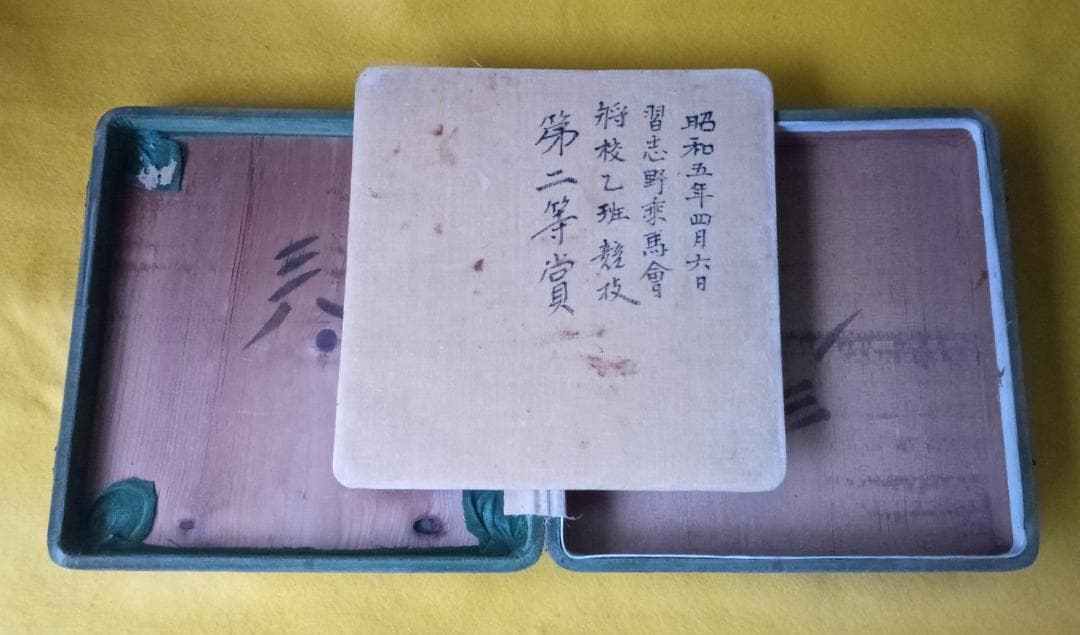 昭和五年四月六日
習志野乘馬會
將校乙班競技
第二等賞
三八